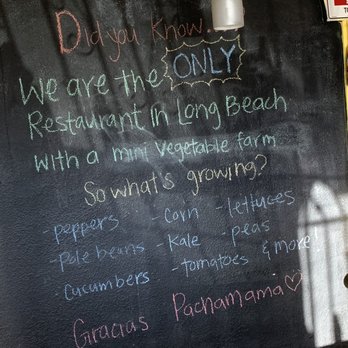 Did you Know...
We are the ONLY
Restaurant in Long Beach
with a mini vegetable farm
So what's growing?
- peppers - corn - lettuces
- Pole beans - Kale - peas
- cucumbers - tomatoes & more!
Gracias Pachamama♡